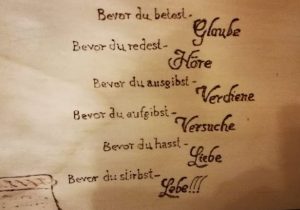 Bevor du betest - Glaube
Bevor du redest - Höre
Bevor du ausgibst - Verdiene
Bevor du aufgibst - Versuche
Bevor du hasst - Liebe
Bevor du stirbst - Lebe!!!